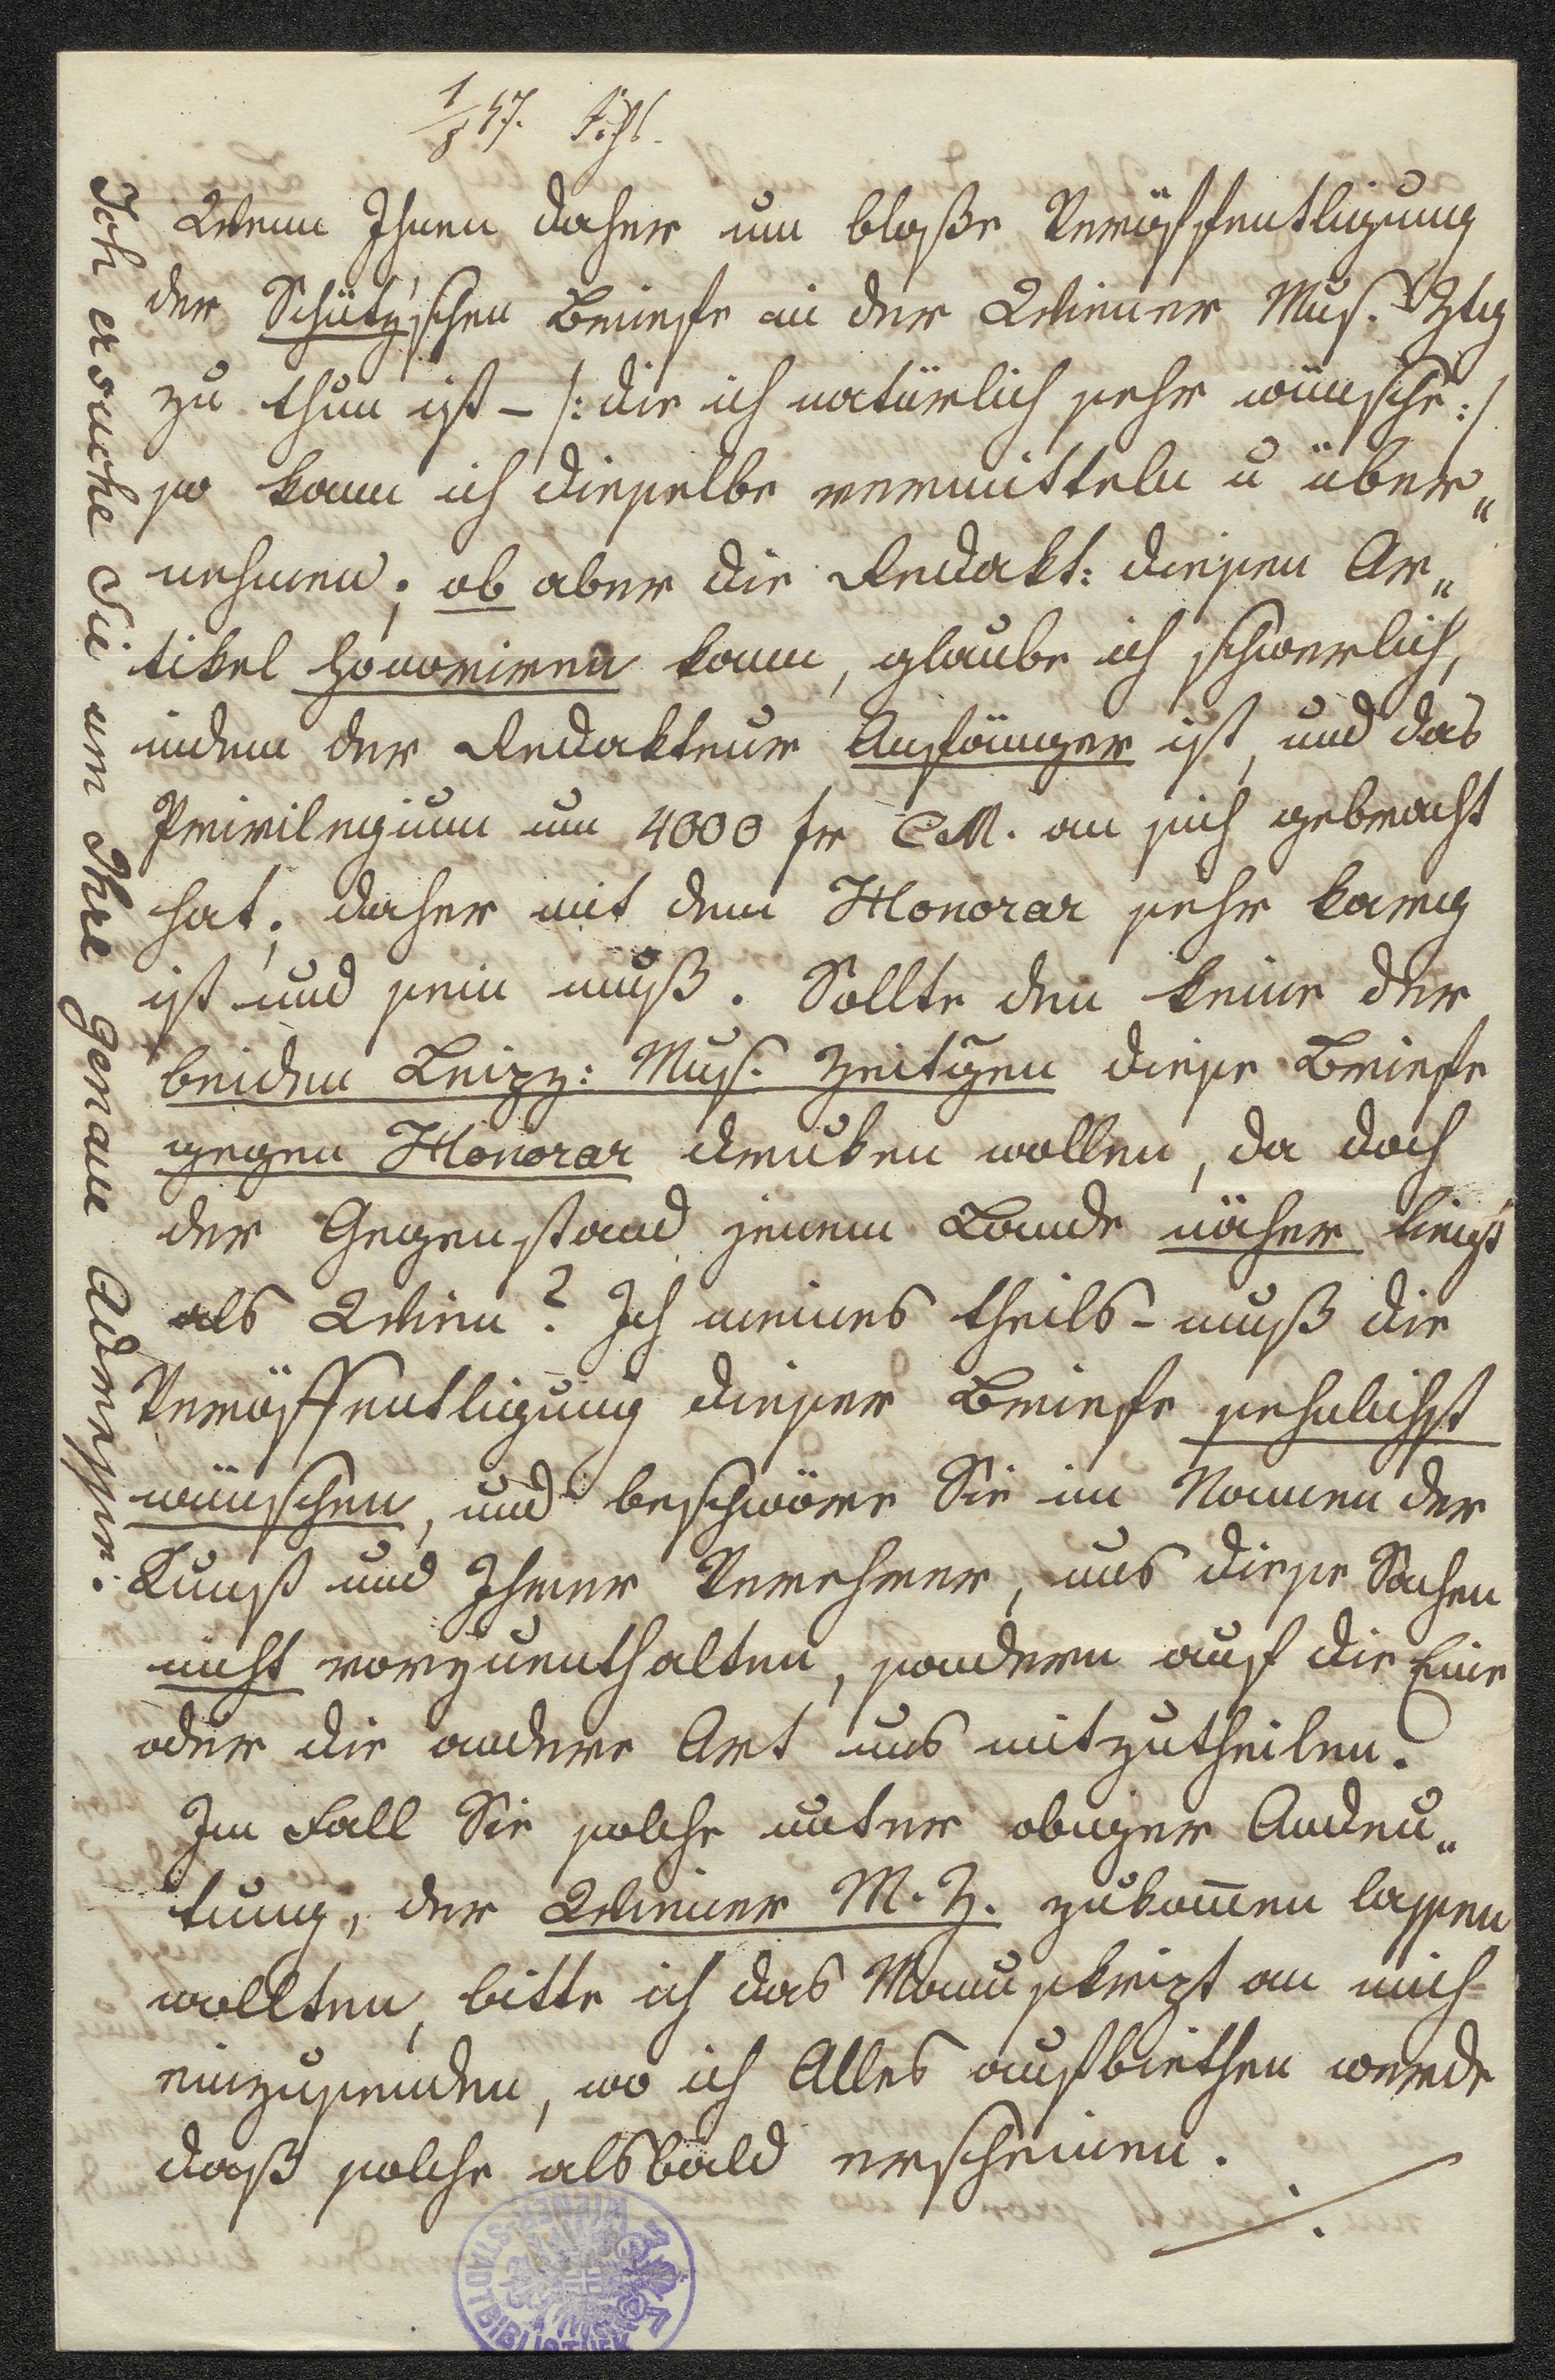 1/8 47.
Wenn Ihnen daher um bloße Veröffentligung
der Schütz'schen Briefe in der Wiener Mus. Ztg
zu thun ist – /: die ich natürlich sehr wünsche :/
so kann ich dieselbe vermitteln u über„
nehmen; ob aber die Redakt: diesen Ar„
tikel honoriren kann, glaube ich schwerlich,
indem der Redakteur Anfänger ist, und das
Privilegium um 4000 fr CM. an sich gebracht
hat; daher mit dem Honorar sehr karg
ist und sein muß. Sollte den keine der
beiden Leipz: Mus. Zeitgen diese Briefe
gegen Honorar druken wollen, da doch
der Gegenstand jenem Lande näher liegt
als Wien? Ich meines theils – muß die
Veröffentligung dieser Briefe sehnlichst
wünschen, und beschwöre Sie im Namen der
Kunst und Ihrer Verehrer, uns diese Sachen
nicht vorzuenthalten, sondern auf die Eine
oder die andere Art uns mitzutheilen.
Im Fall Sie solche unter obiger Andeu„
tung, der Wiener M. Z. zukom̄en lassen
wollten, bitte ich das Manuskript an mich
einzusenden, wo ich Alles aufbiethen werde
daß solche alsbald erscheinen.
./.
Ich ersuche Sie um Ihre genaue Adresse.
WIENER STADTBIBLIOTHEK